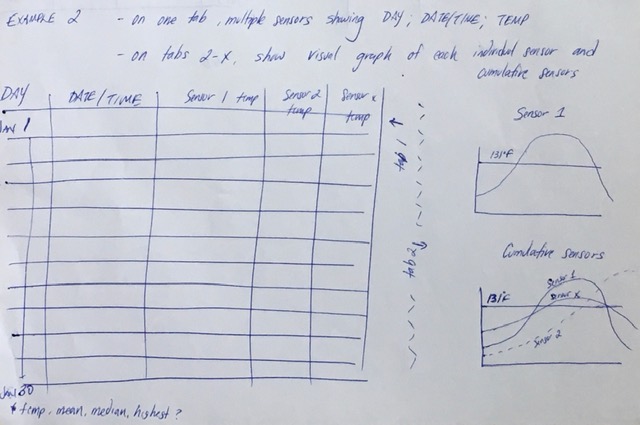 EXAMPLE 2 - on one tab, multiple sensors showing DAY; DATE/TIME; TEMP
- on tabs 2-x, show visual graph of each individual sensor and
cumulative sensors
DAY DATE/TIME Sensor 1 temp Sensor 2 temp Sensor x temp
JAN 1
JAN 30
* temp, mean, median, highest?
tab 1
tab 2
Sensor 1
131°F
Cumulative sensors
131°F
Sensor 1
Sensor x
Sensor 2